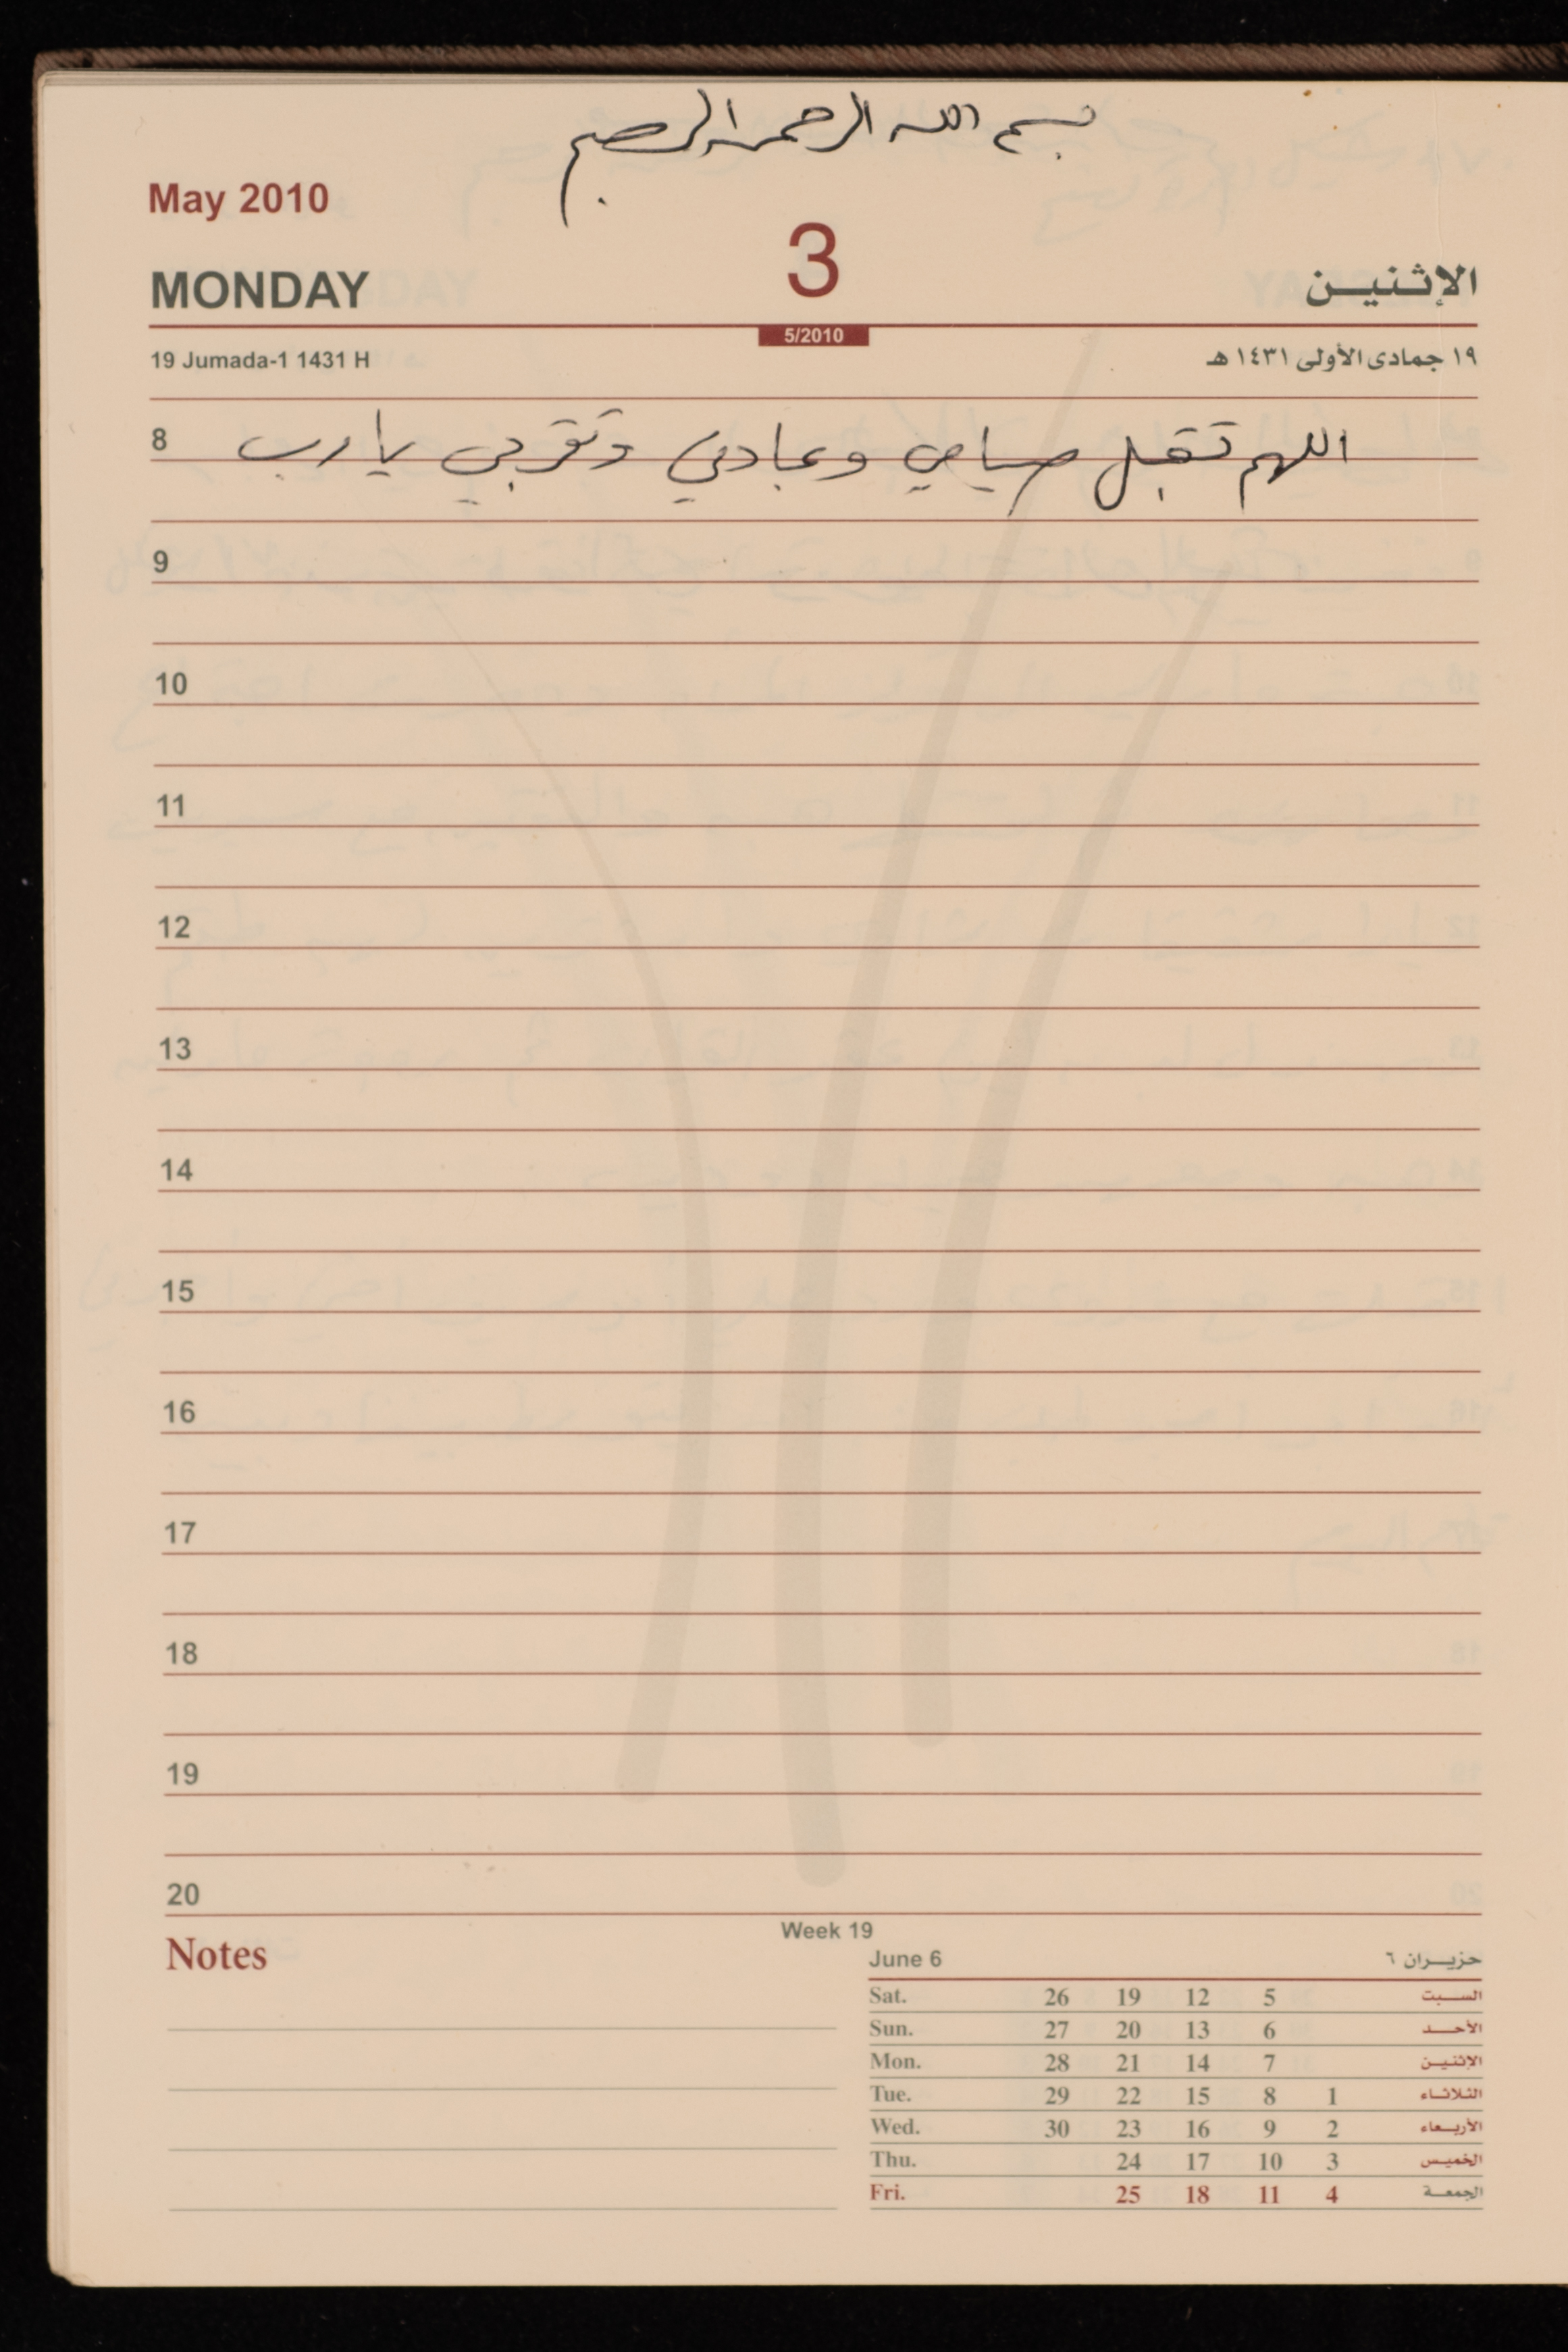 بسم الله الرحمن الرحيم
May 2010
3
MONDAY
الإثنين
5/2010
19 Jumada-1 1431 H
١٩ جمادى الأولى ١٤٣١ هـ
8 اللهم تقبل صيامي وعبادتي وتقربي يا رب
9
10
11
12
13
14
15
16
17
18
19
20
Week 19
Notes
June 6 حزيران ٦
Sat. 26 19 12 5 السبت
Sun. 27 20 13 6 الأحد
Mon. 28 21 14 7 الإثنين
Tue. 29 22 15 8 1 الثلاثاء
Wed. 30 23 16 9 2 الأربعاء
Thu. 24 17 10 3 الخميس
Fri. 25 18 11 4 الجمعة